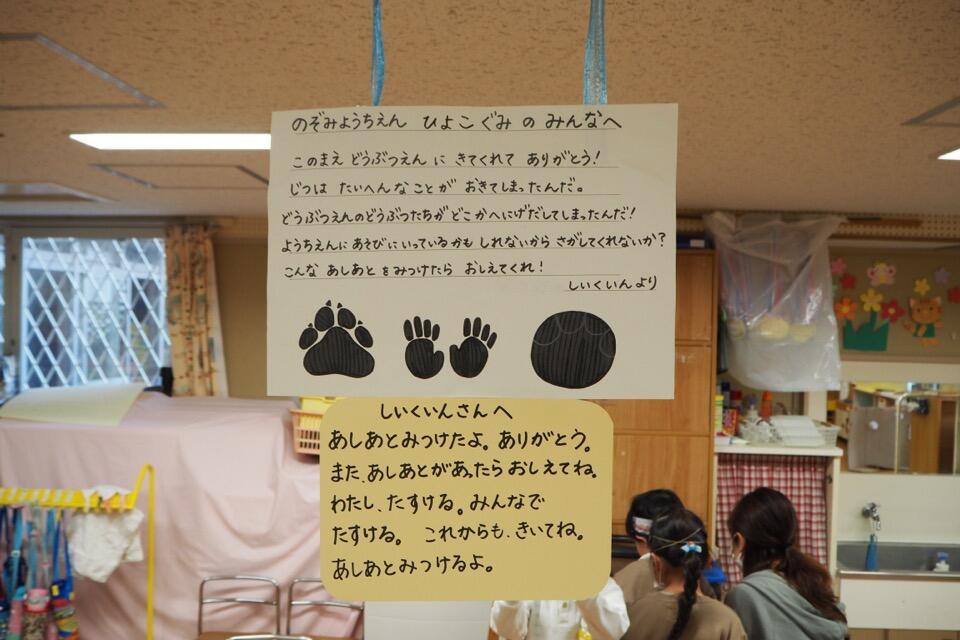 のぞみようちえん ひよこぐみ の みんなへ
このまえ どうぶつえん に きてくれて ありがとう!
じつは たいへんなことが おきてしまったんだ。
どうぶつえんのどうぶつたちが どこかへにげだしてしまったんだ!
ようちえんに あそびに いっているかも しれないから さがしてくれないか?
こんな あしあと をみつけたら おしえてくれ!
しいくいん より
しいくいんさん へ
あしあとみつけたよ。ありがとう。
また、あしあとがあったら おしえてね。
わたし、たすける。みんなで
たすける。 これからも、きいてね。
あしあとみつけるよ。